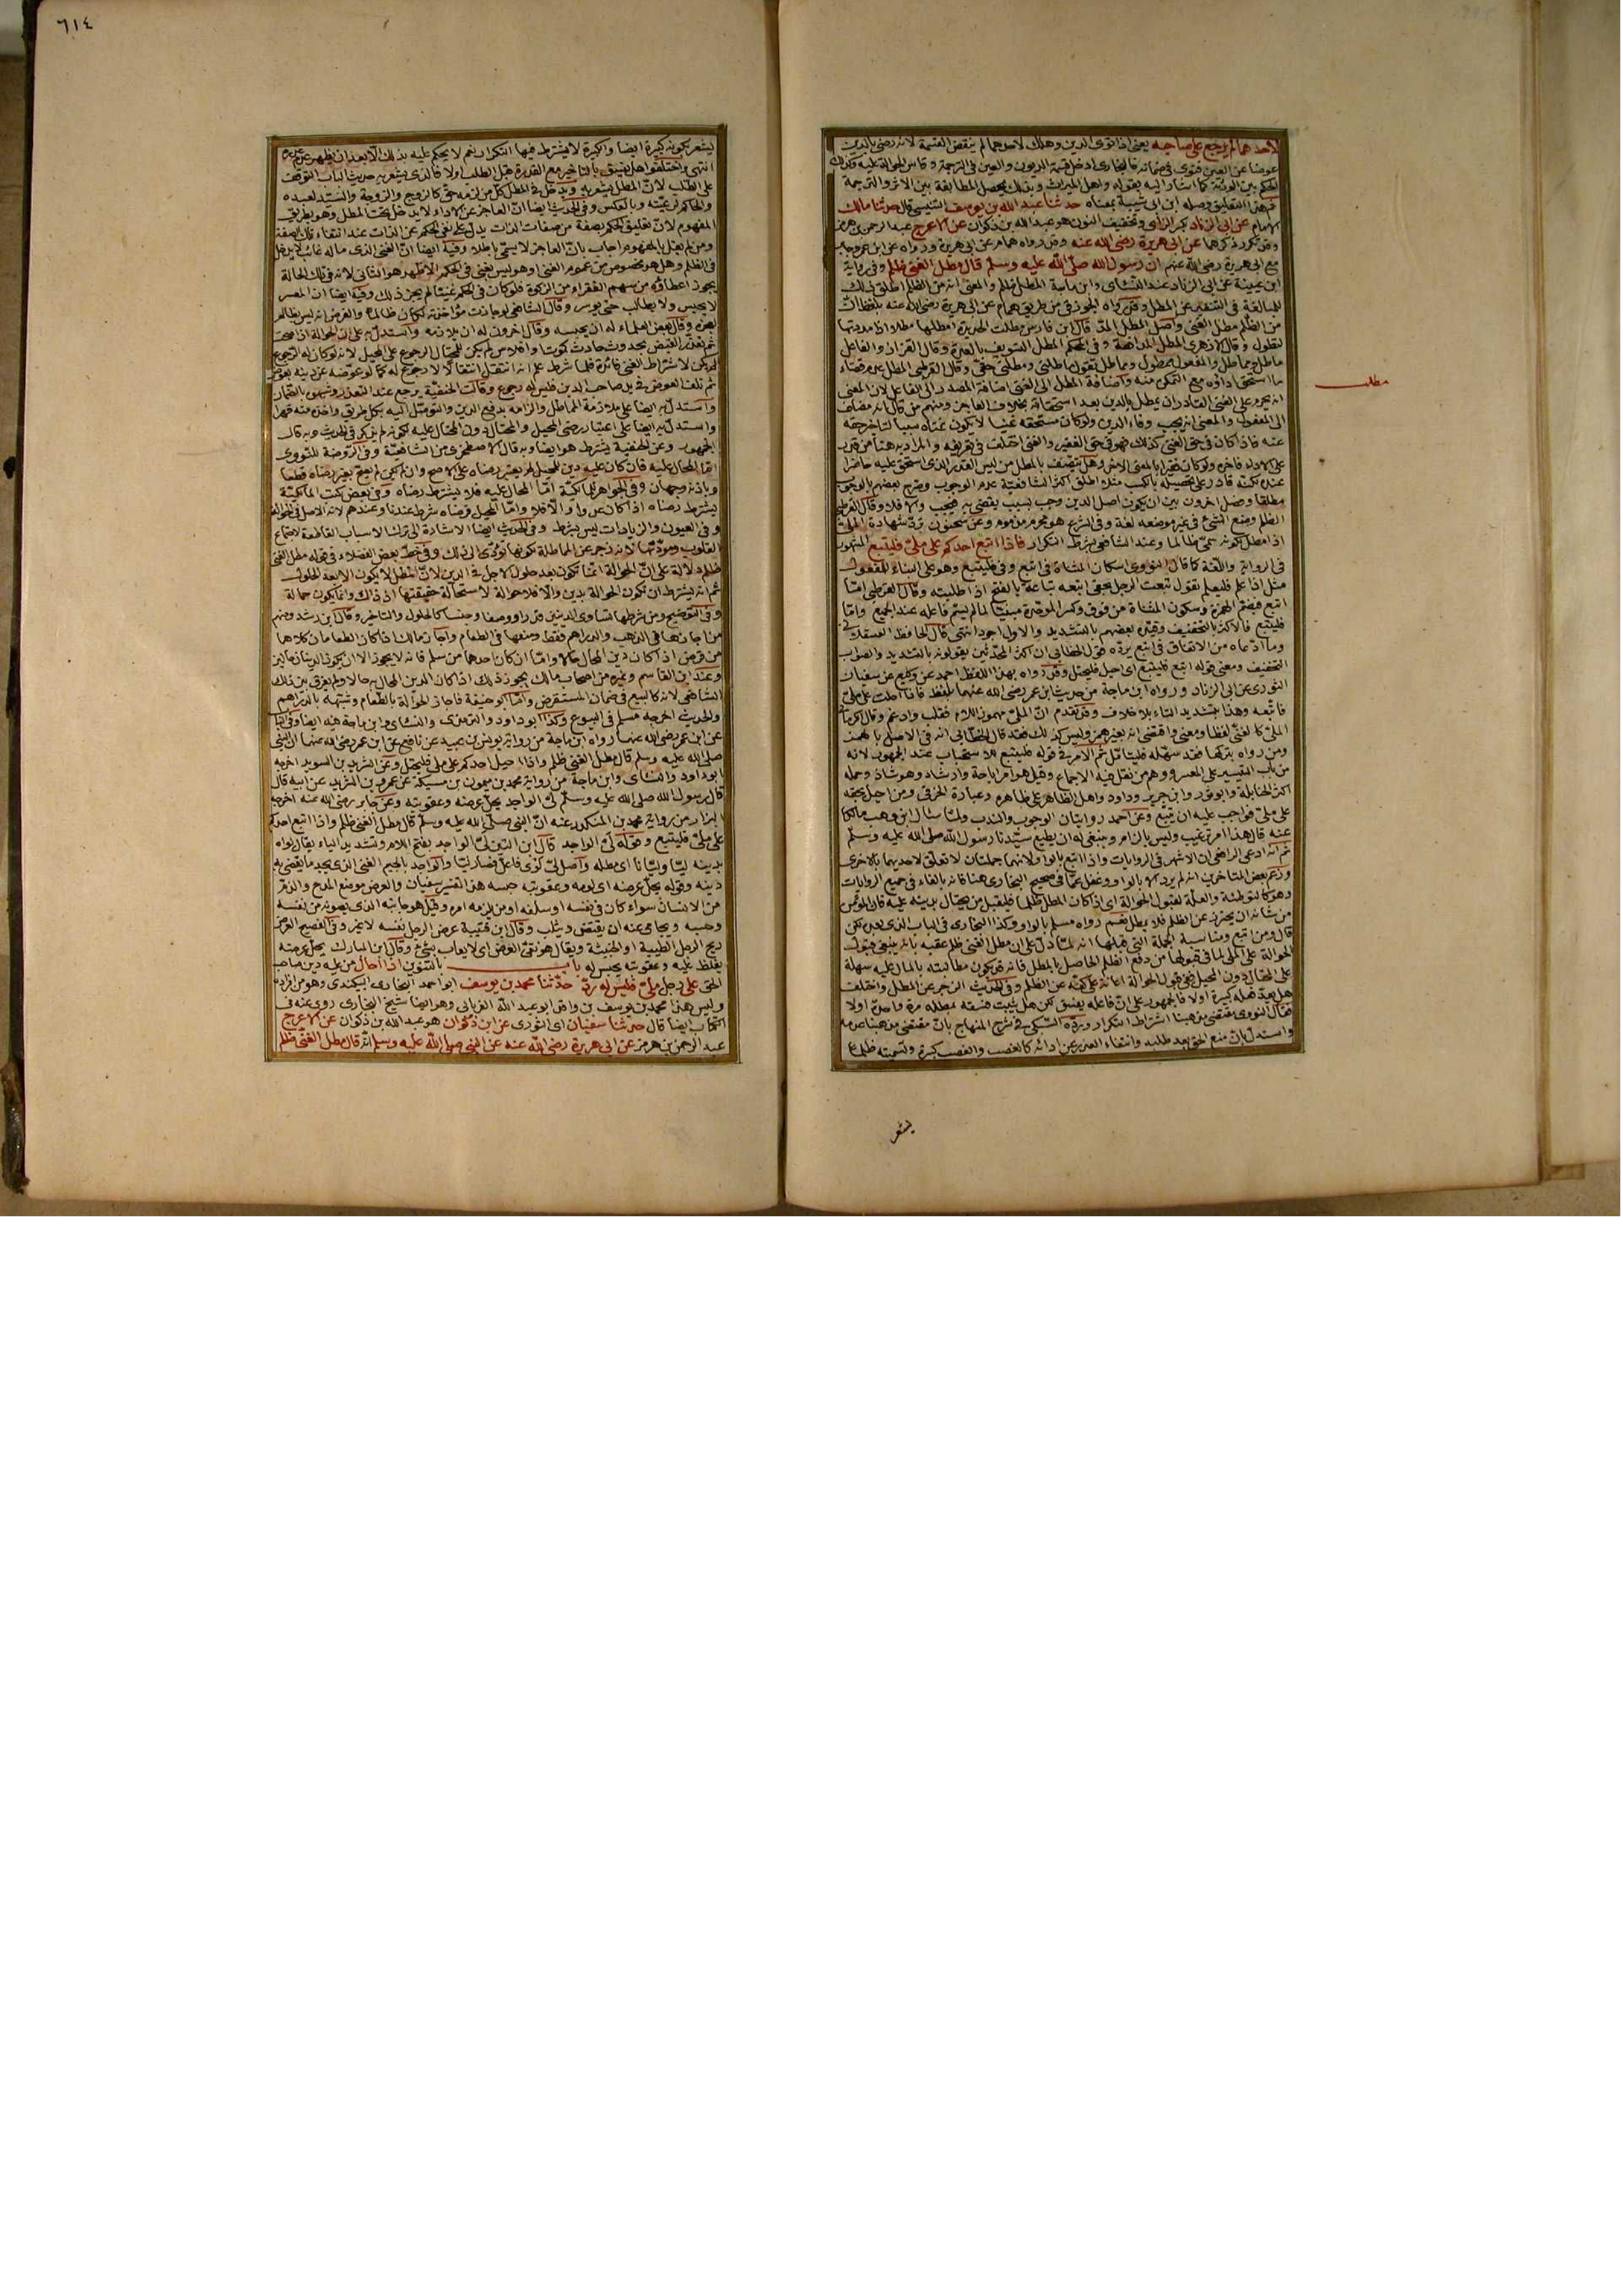 لاحدهما لم يرجع على صاحبه يعنى اذا توى الدين وهلك لاحدهما لم ينقض القسمة لانه رضى بالدين
عوضا عن العين فتوى فى ضمانه فالبخارى ادخل قسمة الديون والعين فى الترجمة وقاس الحوالة عليه وكذلك
الحكم بين الورثة كما اشار اليه بقوله واهل الميراث وبذلك يحصل المطابقة بين الاثر والترجمة
ثم هذا التعليق وصله ابن ابى شيبة بمعناه حدثنا عبد الله بن يوسف التنيسى قال حدثنا مالك
الامام عن ابى الزناد بكسر الزاى وتخفيف النون هو عبد الله بن ذكوان عن الاعرج عبد الرحمن بن هرمز
وقد تكرر ذكرهما عن ابى هريرة رضى الله عنه وقد رواه همام عن ابى هريرة ورواه عن ابن عمر وجابر
مع ابى هريرة رضى الله عنهم ان رسول الله صلى الله عليه وسلم قال مطل الغنى ظلم وفى رواية
ابن عيينة عن ابى الزناد عند النساى وابن ماجة المطل ظلم والمعنى انه من الظلم اطلق ذلك
للمبالغة فى التنفير عن المطل وقد رواه الجوزقى من طريق همام عن ابى هريرة رضى الله عنه بلفظ ان
من الظلم مطل الغنى واصل المطل المد قال ابن فارس مطلت الحديدة امطلها مطلا اذا مددتها
لتطول وقال الازهرى المطل المدافعة وفى المحكم المطل التسويف بالعدة وقال القزاز والفاعل
ماطل ومماطل والمفعول ممطول ومماطل تقول ماطلنى ومطلنى حقى وقال القرطبى المطل عدم قضاء
مطلب
ما استحق اداؤه مع التمكن منه واضافة المطل الى الغنى اضافة المصدر الى الفاعل لان المعنى
انه يحرم على الغنى القادر ان يمطل بالدين بعد استحقاقه بخلاف العاجز ومنهم من قال انه مضاف
الى المفعول والمعنى انه يجب وفاء الدين ولو كان مستحقه غنيا لا يكون غناه سببا لتاخر حقه
عنه فاذا كان فى حق الغنى كذلك فهو فى حق الفقير والغنى اختلف فى تعريفه والمراد به هنا من قدر
على الاداء فاخره ولو كان فقيرا بالمعنى الاخر وهل يتصف بالمطل من ليس القدر الذى استحق عليه حاضرا
عنده لكنه قادر على تحصيله بالكسب مثلا اطلق اكثر الشافعية عدم الوجوب وصرح بعضهم بالوجوب
مطلقا وفصل اخرون بين ان يكون اصل الدين وجب بسبب يعصى به فيجب والا فلا وقال القرطبى
الظلم وضع الشئ فى غير موضعه لغة وفى الشرع هو محرم مذموم وعن سحنون ترد شهادة الملئ
اذا مطل لكونه سمى ظالما وعند الشافعى بشرط التكرار فاذا اتبع احدكم على ملئ فليتبع المشهور
فى الرواية واللغة كما قال النووى اسكان المثناة فى اتبع وفى فليتبع وهو على البناء للمفعول
مثل اذا علم فليعلم تقول تبعت الرجل بحقى اتبعه تباعة بالفتح اذا طلبته وقال القرطبى اما
اتبع فبضم الهمزة وسكون المثناة من فوق وكسر الموحدة مبنيا لما لم يسم فاعله عند الجميع واما
فليتبع فالاكثر بالتخفيف وقيده بعضهم بالتشديد والاول اجود انتهى قال الحافظ العسقلانى
وما ادعاه من الاتفاق فى اتبع يرده قول الخطابى ان اكثر المحدثين يقولونه بالتشديد والصواب
التخفيف ومعنى قوله اتبع فليتبع اى احيل فليحتل وقد رواه بهذا اللفظ احمد عن وكيع عن سفيان
الثورى عن ابى الزناد ورواه ابن ماجة من حديث ابن عمر رضى الله عنهما بلفظ فاذا احلت على ملئ
فاتبعه وهذا بتشديد التاء بلا خلاف وقد تقدم ان الملئ مهموز اللام فقلب وادغم وقال الكرمانى
الملئ كالغنى لفظا ومعنى واقتضى انه بغير همز وليس كذلك فقد قال الخطابى انه فى الاصل بالهمز
ومن رواه بتركها فقد سهله فليتامل ثم الامر فى قوله فليتبع للاستحباب عند الجمهور لانه
من باب التيسير على المعسر ووهم من نقل فيه الاجماع وقيل هو امر اباحة وارشاد وهو شاذ وحمله
اكثر الحنابلة وابو ثور وابن جرير وداود واهل الظاهر على ظاهره وعبارة الخرقى ومن احيل بحقه
على ملئ فواجب عليه ان يتبع وعن احمد روايتان الوجوب والندب ولما سئال ابن وهب مالكا
عنه قال هذا امر ترغيب وليس بالزام وينبغى له ان يطيع سيدنا رسول الله صلى الله عليه وسلم
ثم انه ادعى الرافعى ان الاشهر فى الروايات واذا اتبع بالواو لانهما جملتان لا تعلق لاحديهما بالاخرى
وزعم بعض المتاخرين انه لم يرد الا بالواو وغفل عما فى صحيح البخارى هنا فانه بالفاء فى جميع الروايات
وهو كالتوطئة والعلة لقبول الحوالة اى اذا كان المطل ظلما فليقبل من يحتال بدينه عليه فان المؤمن
من شانه ان يحترز عن الظلم فلا يمطل نعم رواه مسلم بالواو وكذا البخارى فى الباب الذى بعده لكن
قال ومن اتبع ومناسبة الجملة التى قبلها انه لما دل على ان مطل الغنى ظلم عقبه بانه ينبغى قبول
الحوالة على الملى لما فى قبولها من دفع الظلم الحاصل بالمطل فانه قد يكون مطالبته بالمال عليه سهلة
على المحتال دون المحيل ففى قبول الحوالة اعانة على كفه عن الظلم وفى الحديث الزجر عن المطل واختلف
هل يعد فعله كبيرة اولا فالجمهور على ان فاعله يفسق لكن هل يثبت فسقه بمطله مرة واحدة اولا
فقال النووى مقتضى مذهبنا اشتراط التكرار ورده السبكى فى شرح المنهاج بان مقتضى مذهبنا عدمه
واستدل بان منع الحق بعد طلبه وانتفاء العذر عن ادائه كالغصب والغصب كبيرة وتسميته ظلما
يشعر
٦١٤
يشعر بكونه كبيرة ايضا والكبيرة لا يشترط فيها التكرار نعم لا يحكم عليه بذلك الا بعد ان يظهر عدم عذره
انتهى واختلفوا هل يفسق بالتاخير مع القدرة قبل الطلب اولا فالذى يشعر به حديث الباب التوقف
على الطلب لان المطل يشعر به ويدخل فى المطل كل من لزمه حق كالزوج والزوجة والسيد لعبده
والحاكم لرعيته وبالعكس وفى الحديث ايضا ان العاجز عن الاداء لا يدخل تحت المطل وهو بطريق
المفهوم لان تعليق الحكم بصفة من صفات الذات يدل على نفى الحكم عن الذات عند انتفاء تلك الصفة
ومن لم يقل بالمفهوم اجاب بان العاجز لا يسمى ماطلا وفيه ايضا ان الغنى الذى ماله غائب لا يدخل
فى الظلم وهل هو مخصوص من عموم الغنى او هو ليس بغنى فى الحكم الاظهر هو الثانى لانه فى تلك الحالة
يجوز اعطاؤه من سهم الفقراء من الزكوة فلو كان فى الحكم غنيا لم يجز ذلك وفيه ايضا ان المعسر
لا يحبس ولا يطالب حتى يوسر وقال الشافعى لو جازت مؤاخذته لكان ظالما والفرض انه ليس بظالم
لعجزه وقال بعض العلماء له ان يحبسه وقال اخرون له ان يلازمه واستدل به على ان الحوالة اذا صحت
ثم تعذر القبض بحدوث حادث كموت او افلاس لم يكن للمحتال الرجوع على المحيل لانه لو كان له الرجوع
لم يكن لاشتراط الغنى فائدة فلما شرط علم انه انتقل انتقالا لا رجوع له كما لو عوضه عن دينه بعوض
ثم تلف العوض فى يد صاحب الدين فليس له رجوع وقالت الحنفية يرجع عند التعذر وشبهوه بالضمان
واستدل به ايضا على ملازمة المماطل والزامه بدفع الدين والتوصل اليه بكل طريق واخذه منه قهرا
واستدل به ايضا على اعتبار رضى المحيل والمحتال دون المحتال عليه لكونه لم يذكر فى الحديث وبه قال
الجمهور وعن الحنفية يشترط هو ايضا وبه قال الاصطخرى من الشافعية وفى الروضة للنووى
اما المحال عليه فان كان عليه دين للمحيل لم يعتبر رضاه على الاصح وان لم يكن لم يصح بغير رضاه قطعا
وباذنه وجهان وفى الجواهر للمالكية اما المحال عليه فلا يشترط رضاه وفى بعض كتب المالكية
يشترط رضاه اذا كان عدوا والا فلا واما المحيل فرضاه شرط عندنا وعندهم لانه الاصل فى الحوالة
وفى العيون والزيادات ليس بشرط وفى الحديث ايضا الاشارة الى ترك الاسباب القاطعة لاجتماع
القلوب ومودتها لانه زجر عن المماطلة لكونها تؤدى الى ذلك وفى خط بعض الفضلاء فى قوله مطل الغنى
ظلم دلالة على ان الحوالة انما تكون بعد حلول الاجل فى الدين لان المطل لا يكون الا بعد الحلول
ثم انه يشترط ان تكون الحوالة بدين والا فلا حوالة لاستحالة حقيقتها اذ ذاك وانما يكون حمالة
وفى التوضيح ومن شرطها تساوى الدينين قدرا ووصفا وجنسا كالحلول والتاخير وقال ابن رشد ومنهم
من اجازها فى الذهب والدراهم فقط ومنعها فى الطعام واجاز مالك اذا كان الطعامان كلاهما
من قرض اذا كان دين المحال حالا واما ان كان احدهما من سلم فانه لا يجوز الا ان يكون الدينان حالين
وعند ابن القاسم وغيره من اصحاب مالك يجوز ذلك اذا كان الدين المحال به حالا ولم يفرق بين ذلك
الشافعى لانه كالبيع فى ضمان المستقرض واما ابو حنيفة فاجاز الحوالة بالطعام وشبهه بالدراهم
والحديث اخرجه مسلم فى البيوع وكذا ابو داود والترمذى والنساى وابن ماجة فيه ايضا وفى الباب
عن ابن عمر رضى الله عنهما رواه ابن ماجة من رواية يونس بن عبيد عن نافع عن ابن عمر رضى الله عنهما ان النبى
صلى الله عليه وسلم قال مطل الغنى ظلم واذا احيل احدكم على ملى فليحتل وعن الشريد بن السويد اخرجه
ابو داود والنساى وابن ماجة من رواية محمد بن ميمون بن مسيكة عن عمرو بن الشريد عن ابيه قال
قال رسول الله صلى الله عليه وسلم لى الواجد يحل عرضه وعقوبته وعن جابر رضى الله عنه اخرجه
البزار من رواية محمد بن المنكدر عنه ان النبى صلى الله عليه وسلم قال مطل الغنى ظلم واذا اتبع احدكم
على ملئ فليتبع وقوله لى الواجد قال ابن التين لى الواجد بفتح اللام وتشديد الياء يقال لواه
بدينه ليا وليانا اى مطله واصل لى لوى فاعل فصار ليا والواجد بالجيم الغنى الذى يجد ما يقضى به
دينه وقوله يحل عرضه اى لومه وعقوبته حبسه هذا تفسير سفيان والعرض موضع المدح والذم
من الانسان سواء كان فى نفسه او سلفه او من يلزمه امره وقيل هو جانبه الذى يصونه من نفسه
وحسبه ويحامى عنه ان ينتقص ويثلب وقال ابن قتيبة عرض الرجل نفسه لا غير وفى الفصيح العرض
ريح الرجل الطيبة او الخبيثة ويقال هو نقى العرض اى لا يعاب بشئ وقال ابن المبارك يحل عرضه
يغلظ عليه وعقوبته يحبس له باب بالتنوين اذا احال من عليه دين صاحب
الحق على رجل ملئ فليس له رد حدثنا محمد بن يوسف ابو احمد البخارى البيكندى وهو من افراده
وليس هذا محمد بن يوسف بن واقد ابو عبد الله الفريابى وهو ايضا شيخ البخارى روى عنه فى
الكتاب ايضا قال حدثنا سفيان اى الثورى عن ابن ذكوان هو عبد الله بن ذكوان عن الاعرج
عبد الرحمن بن هرمز عن ابى هريرة رضى الله عنه عن النبى صلى الله عليه وسلم انه قال مطل الغنى ظلم